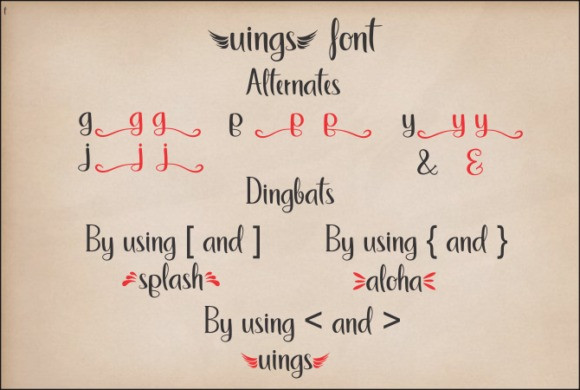 uings font
Alternates
g g g p p p y y y
j j j & &
Dingbats
By using [ and ] By using { and }
splash aloha
By using < and >
uings